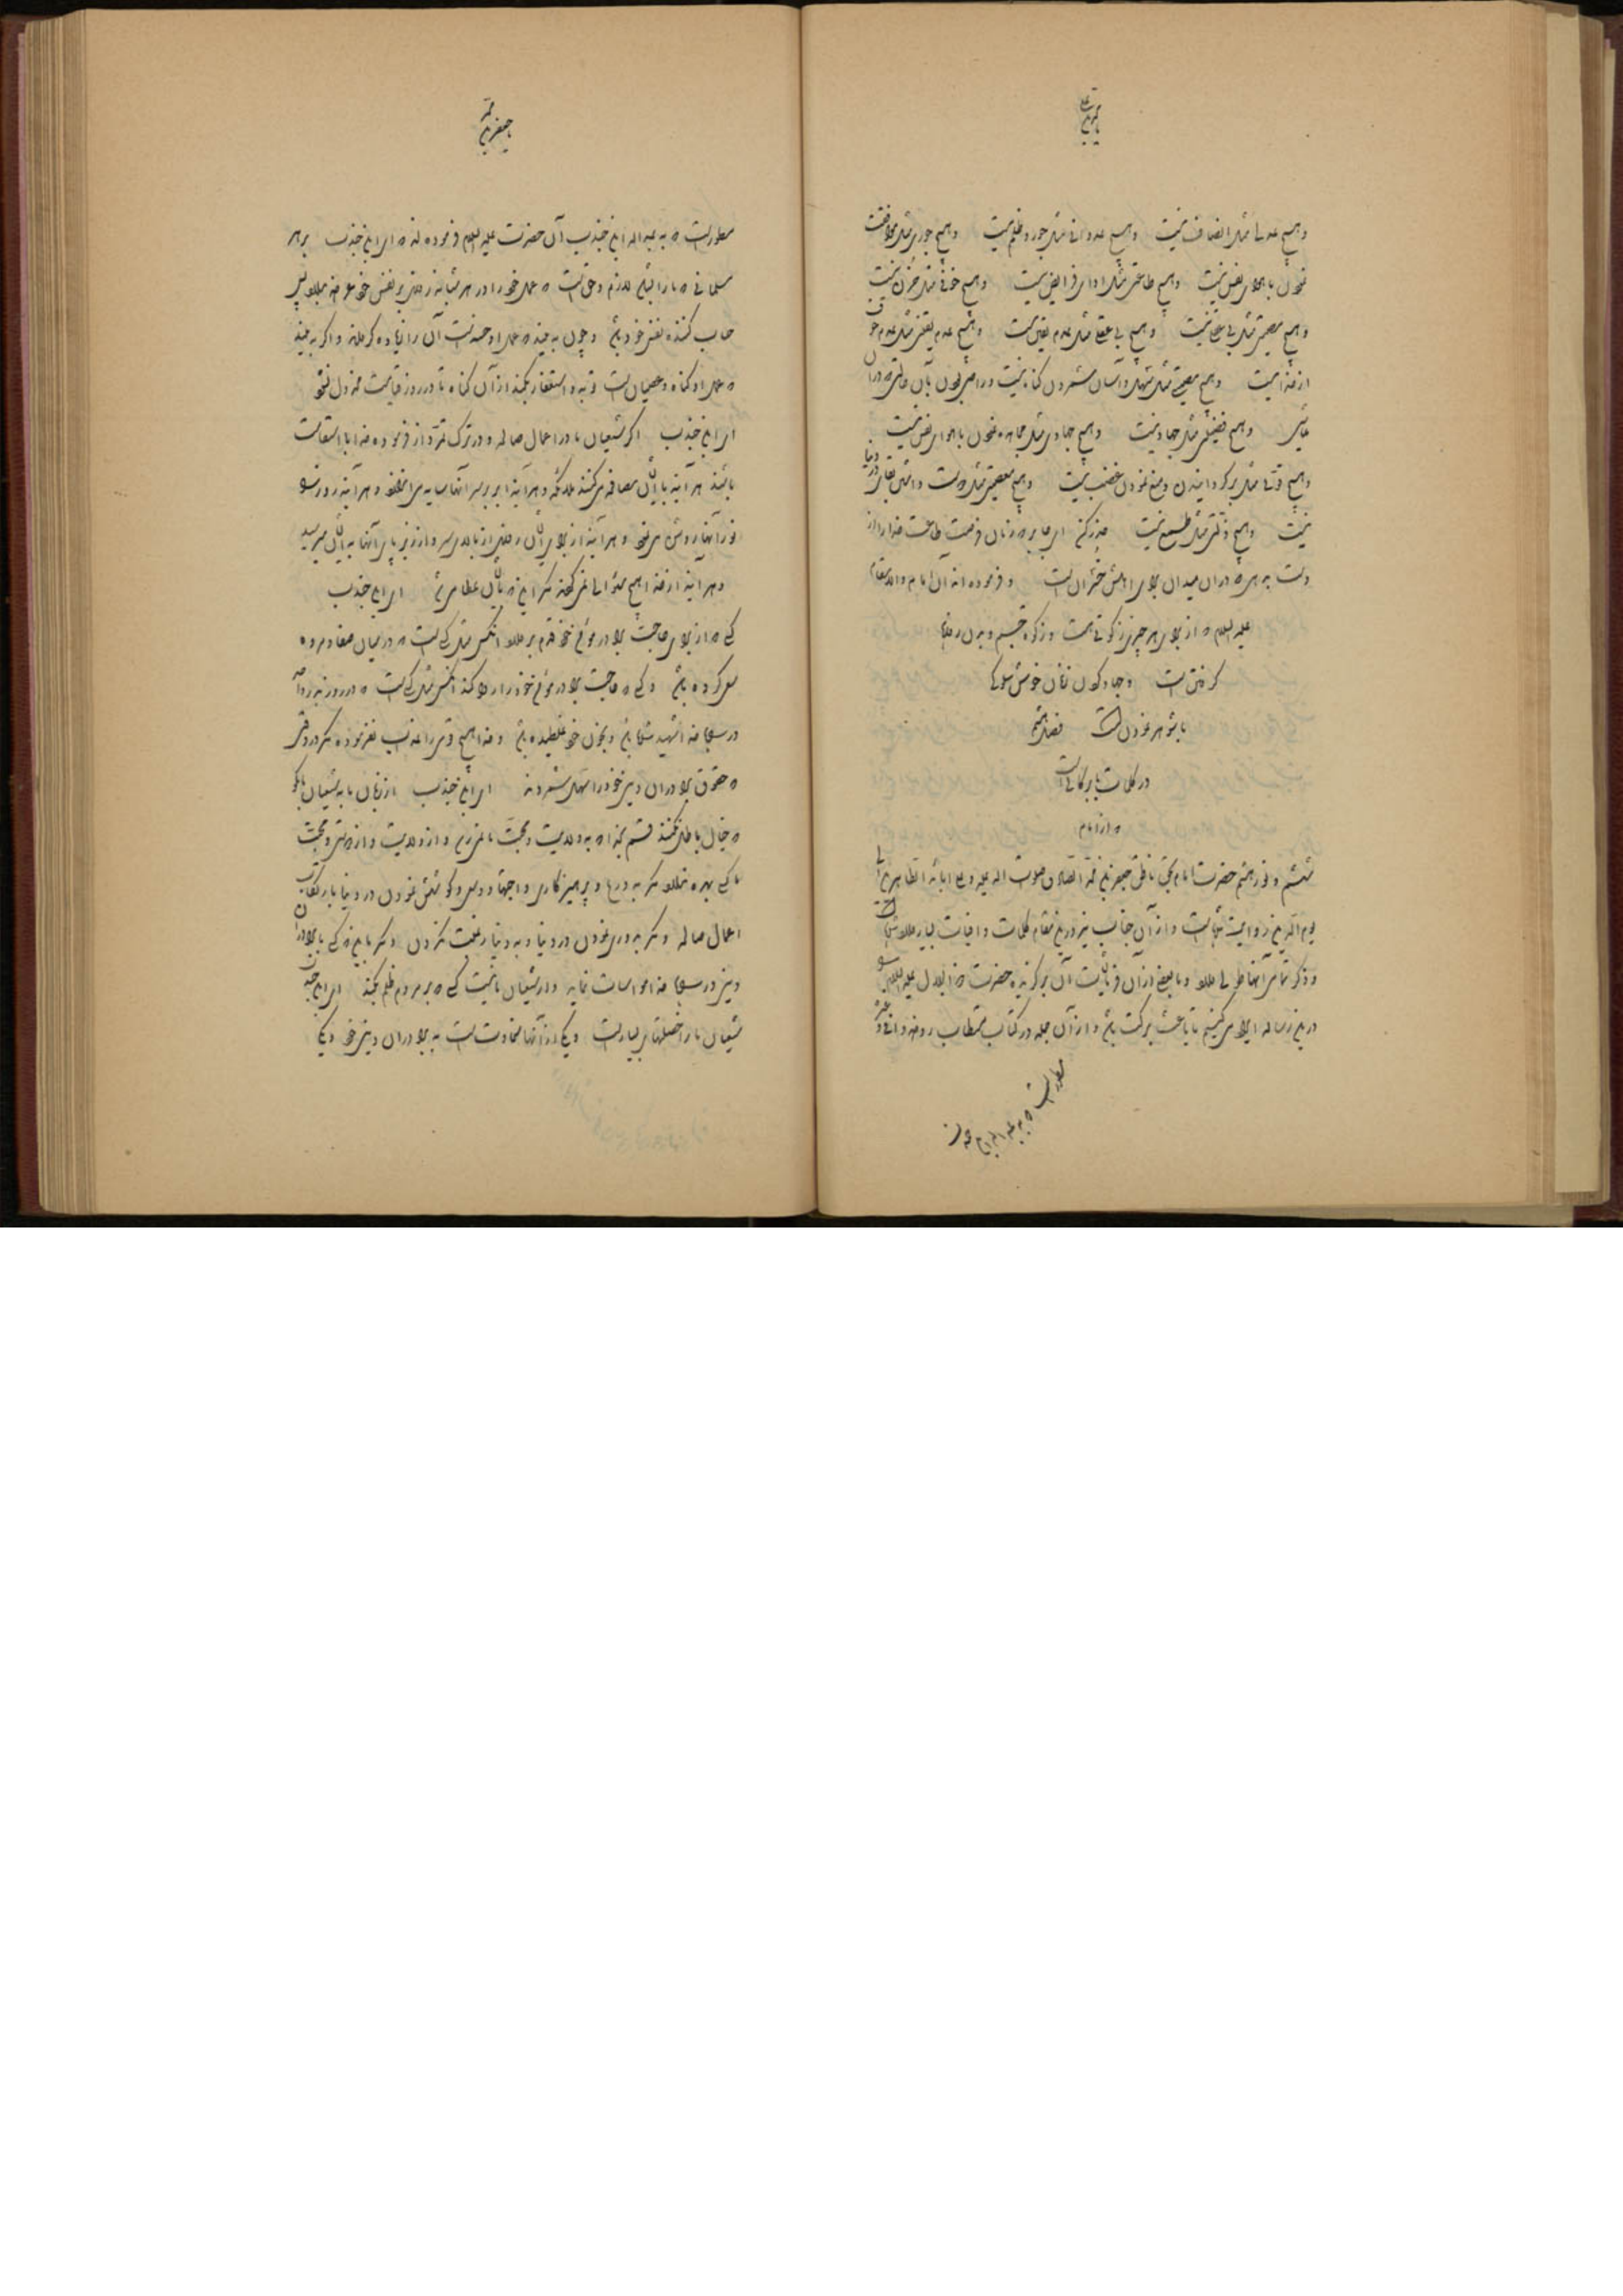 وهیچ عدلی مثل انصاف نیست وهیچ عدوانی مثل جور وظلم نیست وهیچ جوری مثل موافقت
نمودن با هوای نفس نیست وهیچ طاعتی مثل ادای فرایض نیست وهیچ خوفی مثل حزن نیست
وهیچ مصیبتی مثل بی عقلی نیست وهیچ بی عقلی مثل عدم یقین نیست وهیچ عدم یقینی مثل عدم خوف
از خدا نیست وهیچ مصیبتی مثل سهل وآسان شمردن گناه نیست وراضی بودن بآن حالتی که دران
باشی وهیچ فضیلتی مثل جهاد نیست وهیچ جهادی مثل مجاهده نمودن با هوای نفس نیست
وهیچ قوتی مثل برگردانیدن ومنع نمودن غضب نیست وهیچ معصیتی مثل دوست داشتن بقای در دنیا
نیست وهیچ ذلتی مثل طمع نیست حذر کن ای جابر که زنان فرصت طاعت خدا را از
دست به
علیه السلام که از برای هر چیزی زکوتی است وزکوة جسم وبدن روزه
گرفتن است وجهاد کردن زنان خوش سلوکی
با شوهر نمودن است فصل هشتم
در کلمات با برکاتی است
که از امام
ششم ونور هشتم حضرت امام بحق ناطق جعفر بن محمد الصادق صلوات الله علیه وعلی ابائه الطاهرین الی
یوم الدین روایت شده است واز آن جناب نیز در این مقام کلمات وافیات بسیار وارد شده است
وذکر تمامی آنها
در این رساله ایراد می کنیم تا باعث برکت باشد واز آن جمله در کتاب مستطاب روضه
مسطور است که به عبد الله ابن جندب
جعفر بن محمد
مسطور است که به عبد الله ابن جندب آن حضرت علیه السلام فرموده اند که ای ابن جندب بر هر
مسلمانی که ما را بشناسد لازم وحق است که عمل خود را در هر شبانه روزی بر نفس خود عرضه بدارد پس
حساب کننده نفس خود باشد وچون به بیند که عمل او حسنه است آن را زیاده گرداند واگر به بیند
که عمل او گناه وعصیان است توبه واستغفار بکند از آن گناه تا در روز قیامت مخذول نشود
ای ابن جندب اگر شیعیان ما در اعمال صالحه ودر ترک تمرد از فرموده خدا با استقامت
باشند هر آینه با ایشان مصافحه می کنند ملائکه وهر آینه ابر بر سر آنها سایه می اندازد وهر آینه در روز
نور آنها روشن می شود وهر آینه از برای ایشان روزی از بالای سر واز زیر پای آنها به ایشان می رسید
وهر آینه از خدا هیچ سئوالی نمی کنند مگر این که به ایشان عطا می شد ای ابن جندب
کسی که از برای حاجت برادر مؤمن خود قدم بر دارد آنکس مثل کسی است که در میان صفا ومروه
سعی کرده باشد وکسی که حاجت برادر مؤمن خود را روا کند آنکس مثل کسی است که در روز بدر واحد
در سبیل خدا شهید شده باشد وبخون خود غلطیده باشد وخدا هیچ قومی را عذاب نفرموده مگر در وقتی
که حقوق برادران دینی خود را سهل شمردند ای ابن جندب از زبان ما به شیعیان ما بگو
که خیال باطل نکنند قسم بخدا که به ولایت ومحبت ما نمی رسند واز ولایت واز دوستی ومحبت
ما کسی بهره ندارد مگر به ورع وپرهیزکاری واجتهاد وسعی وکوشش نمودن در دنیا بارتکاب
اعمال صالحه ومگر به دوری نمودن در دنیا وبه دنیا رغبت نکردن ومگر باین که کسی با برادران
دینی در سبیل خدا مواسات نماید واز شیعیان ما نیست کسی که بر مردم ظلم بکند ای ابن جندب
شیعیان ما را خصلتهای بسیار است ویکی از آنها سخاوت است به برادران دینی خود ویکی